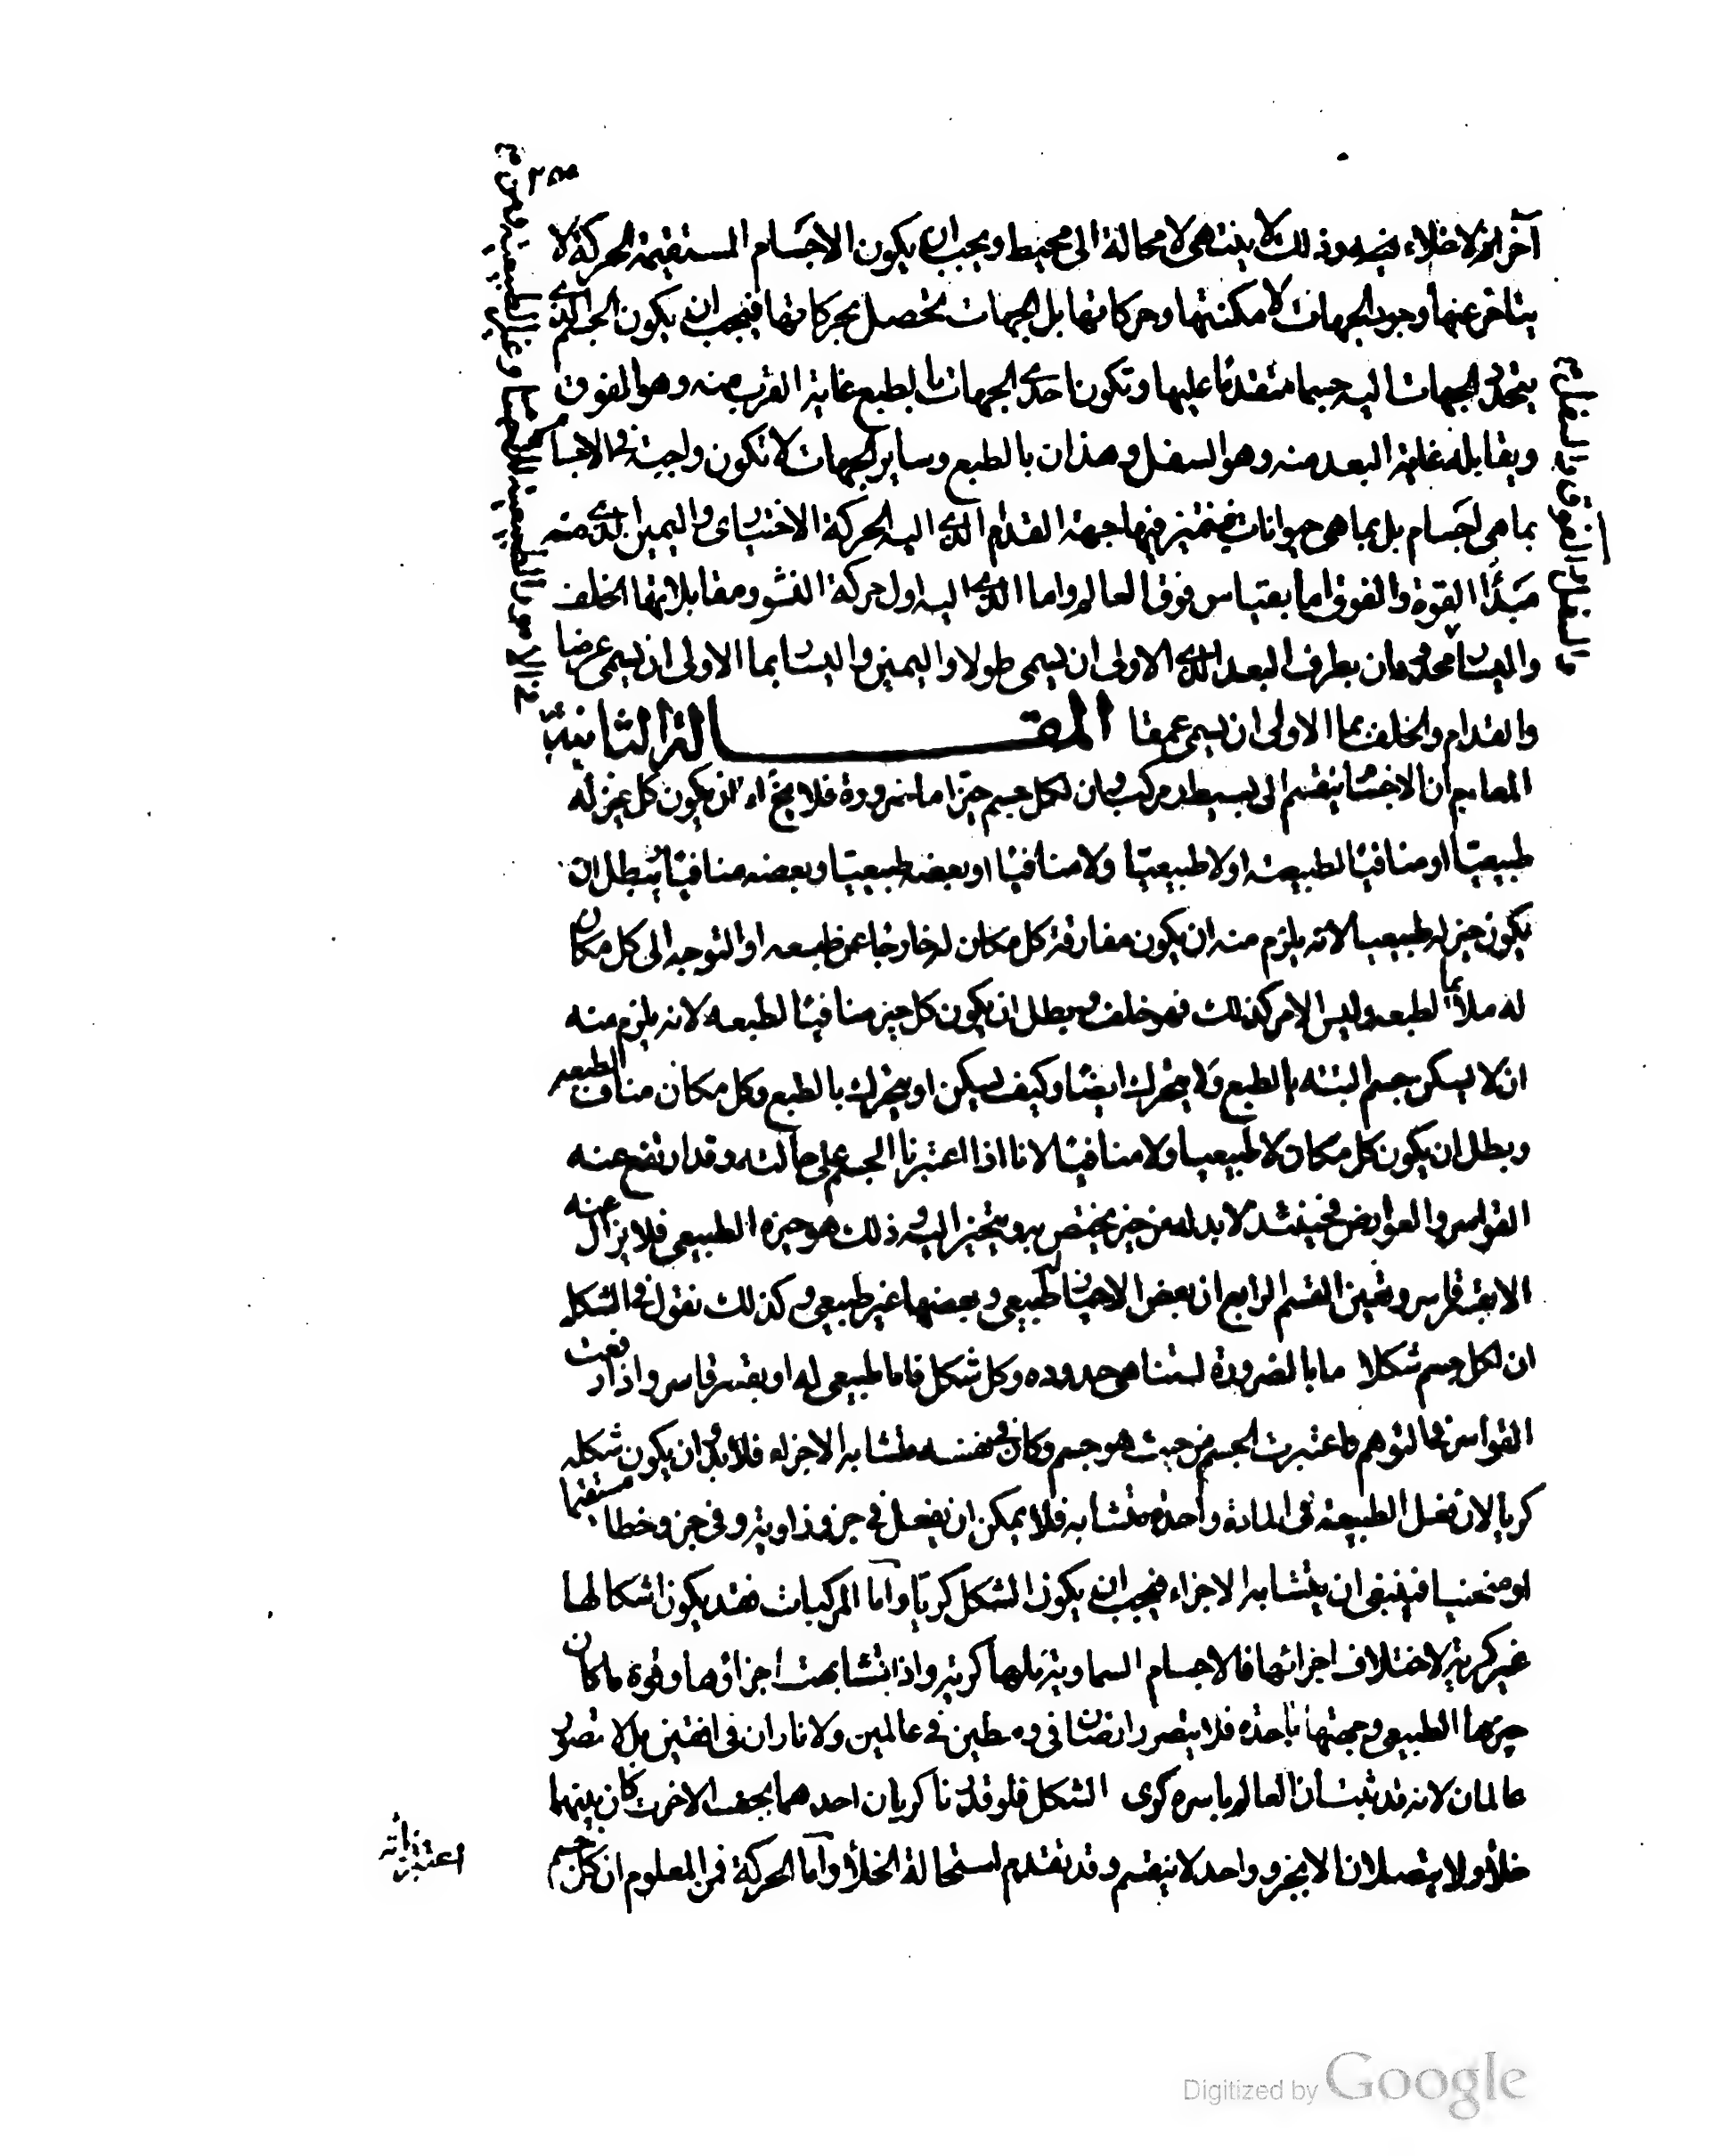 ٢٥٥
آخر او لا خلاء فيه وذلك لا ينتهى لا محالة الى محيط ويجب ان يكون الاجسام المستقيمة الحركة لا
يتاخر عنها وجود الجهات لامكنتها وحركاتها بل الجهات تحصل بحركاتها فيجب ان يكون الجسم الذى
يتحدد الجهات اليه جسما متقدما عليها وتكون احدى الجهات بالطبع غاية القرب منه وهو الفوق
ويقابله غاية البعد منه وهو السفل وهذان بالطبع وساير الجهات لا تكون واجبة فى الاجسام
بما هى اجسام بل بما هى حيوانات فيتميز فيها جهة القدام الذى اليه الحركة الاختيارى واليمين الذى منه
مبدأ القوة والفوق اما بقياس فوق العالم واما الذى اليه اول حركة النشو ومقابلاتها الخلف
واليسار محدودان بطرف البعد الذى الاولى ان يسمى طولا واليمين واليسار بما الاولى ان يسمى عرضا
والقدام والخلف بما الاولى ان يسمى عمقا المقـــالة الثانية
ان الاجسام ينقسم الى بسيط ومركب وان لكل جسم حيزا ما ضرورة فلا يخ اما ان يكون كل حيز له
طبيعيا او منافيا لطبيعته او لا طبيعيا ولا منافيا او بعضه طبيعيا وبعضه منافيا يبطل ان
يكون حيز له طبيعيا لانه يلزم منه ان يكون مفارقة كل مكان له خارجا عن طبعه او التوجه الى كل مكان
له ملائما لطبعه وليس الامر كذلك فهو خلف ويبطل ان يكون كل حيز منافيا لطبعه لانه يلزم منه
ان لا يسكن جسم البتة بالطبع ولا يتحرك ايضا وكيف يسكن او يتحرك بالطبع وكل مكان مناف لطبعه
وبطل ان يكون كل مكان لا طبيعيا ولا منافيا لانا اذا اعتبرنا الجسم على حالته وقد ارتفع عنه
القواسر والعوارض فحينئذ لا بد له من حيز يختص به ويتحيز اليه وذلك هو حيزه الطبيعى فلا يزال عنه
الا بقسر قاسر وتعين القسم الرابع ان بعض الاحياز له طبيعى وبعضها غير طبيعى وكذلك نقول فى الشكل
ان لكل جسم شكلا ما بالضرورة لتناهى حدوده وكل شكل فاما طبيعى له او بقسر قاسر واذا رفعت
القواسر فى التوهم واعتبرت الجسم من حيث هو جسم وكان فى نفسه متشابه الاجزاء فلا بد ان يكون شكله
كريا لان فعل الطبيعة فى المادة واحدة متشابه فلا يمكن ان يفعل فى جزء زاوية وفى جزء خطا مستقيما
او منحنيا فينبغى ان يتشابه الاجزاء فيجب ان يكون الشكل كريا واما المركبات فقد يكون اشكالها
غير كرية لاختلاف اجزائها فالاجسام السماوية كلها كرية واذا تشابهت اجزاؤها وقوة ما كان
حيزها الطبيعى وجهتها واحدة فلا يتصور ارضان فى وسطين فى عالمين ولا ناران فى افقين بل لا يتصور
عالمان لانه قد ثبت ان العالم باسره كوى الشكل فلو قدرنا كريان احدهما بجنب الاخر كان بينهما
خلأ ولا يتصلان الا بجزء واحد لا ينقسم وقد تقدم استحالة الخلأ واما الحركة فمن المعلوم ان كل جسم